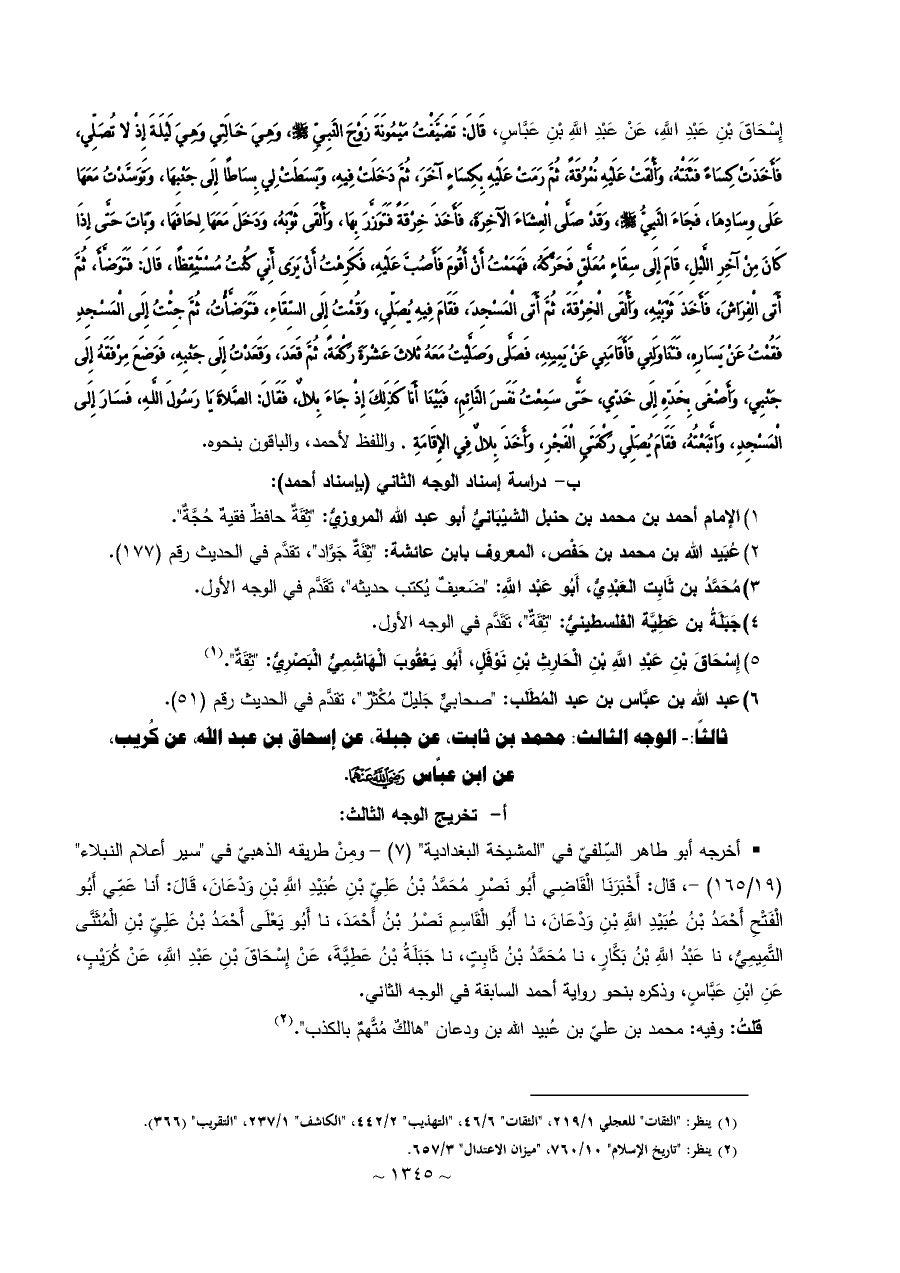 إِسْحَاقَ بْنِ عَبْدِ اللَّهِ، عَنْ عَبْدِ اللَّهِ بْنِ عَبَّاسٍ، قَالَ: تَضَيَّفْتُ مَيْمُونَةَ زَوْجَ النَّبِيِّ ﷺ، وَهِيَ خَالَتِي وَهِيَ لَيْلَةَ إِذْ لَا تُصَلِّي،
فَأَخَذَتْ كِسَاءً فَثَنَتْهُ، وَأَلْقَتْ عَلَيْهِ نُمْرُقَةً، ثُمَّ رَمَتْ عَلَيْهِ بِكِسَاءٍ آخَرَ، ثُمَّ دَخَلَتْ فِيهِ، وَبَسَطَتْ لِي بِسَاطًا إِلَى جَنْبِهَا، وَتَوَسَّدْتُ مَعَهَا
عَلَى وِسَادِهَا، فَجَاءَ النَّبِيُّ ﷺ، وَقَدْ صَلَّى الْعِشَاءَ الْآخِرَةَ، فَأَخَذَ خِرْقَةً فَتَوَزَّرَ بِهَا، وَأَلْقَى ثَوْبَهُ، وَدَخَلَ مَعَهَا لِحَافَهَا، وَبَاتَ حَتَّى إِذَا
كَانَ مِنْ آخِرِ اللَّيْلِ، قَامَ إِلَى سِقَاءٍ مُعَلَّقٍ فَحَرَّكَهُ، فَهَمَمْتُ أَنْ أَقُومَ فَأَصُبَّ عَلَيْهِ، فَكَرِهْتُ أَنْ يَرَى أَنِّي كُنْتُ مُسْتَيْقِظًا، قَالَ: فَتَوَضَّأَ، ثُمَّ
أَتَى الْفِرَاشَ، فَأَخَذَ ثَوْبَيْهِ، وَأَلْقَى الْخِرْقَةَ، ثُمَّ أَتَى الْمَسْجِدَ، فَقَامَ فِيهِ يُصَلِّي، وَقُمْتُ إِلَى السِّقَاءِ، فَتَوَضَّأْتُ، ثُمَّ جِئْتُ إِلَى الْمَسْجِدِ
فَقُمْتُ عَنْ يَسَارِهِ، فَتَنَاوَلَنِي فَأَقَامَنِي عَنْ يَمِينِهِ، فَصَلَّى وَصَلَّيْتُ مَعَهُ ثَلَاثَ عَشْرَةَ رَكْعَةً، ثُمَّ قَعَدَ، وَقَعَدْتُ إِلَى جَنْبِهِ، فَوَضَعَ مِرْفَقَهُ إِلَى
جَنْبِي، وَأَصْغَى بِخَدِّهِ إِلَى خَدِّي، حَتَّى سَمِعْتُ نَفَسَ النَّائِمِ، فَبَيْنَا أَنَا كَذَلِكَ إِذْ جَاءَ بِلَالٌ، فَقَالَ: الصَّلَاةَ يَا رَسُولَ اللَّهِ، فَسَارَ إِلَى
الْمَسْجِدِ، وَاتَّبَعْتُهُ، فَقَامَ يُصَلِّي رَكْعَتَيِ الْفَجْرِ، وَأَخَذَ بِلَالٌ فِي الْإِقَامَةِ . واللفظ لأحمد، والباقون بنحوه.
ب- دراسة إسناد الوجه الثاني (بإسناد أحمد):
١) الإمام أحمد بن محمد بن حنبل الشَيْبَانيُّ أبو عبد الله المروزيُّ: "ثِقَةٌ حافظٌ فقيهٌ حُجَّةٌ".
٢) عُبَيد الله بن محمد بن حَفْص، المعروف بابن عائشة: "ثِقَةٌ جَوَّاد"، تقدَّم في الحديث رقم (١٧٧).
٣) مُحَمَّدُ بن ثَابِت العَبْدِيُّ، أَبُو عَبْد اللَّهِ: "ضَعيفٌ يُكتب حديثه"، تَقَدَّم في الوجه الأول.
٤) جَبَلَةُ بن عَطِيَّة الفلسطينيُّ: "ثِقَةٌ"، تَقَدَّم في الوجه الأول.
٥) إِسْحَاقَ بْنِ عَبْدِ اللَّهِ بْنِ الْحَارِثِ بْنِ نَوْفَلٍ، أَبُو يَعْقُوبَ الْهَاشِمِيُّ الْبَصْرِيُّ: "ثِقَةٌ".(١)
٦) عبد الله بن عبَّاس بن عبد المُطَّلب: "صحابيٌّ جَليلٌ مُكْثرٌ"، تقدَّم في الحديث رقم (٥١).
ثالثًا:- الوجه الثالث: محمد بن ثابت، عن جبلة، عن إسحاق بن عبد الله، عن كُريب،
عن ابن عبَّاس رَضِيَ اللَّهُ عَنْهُمَا.
أ- تخريج الوجه الثالث:
▪ أخرجه أبو طاهر السِّلفيّ في "المشيخة البغدادية" (٧) – ومِنْ طريقه الذهبيّ في "سير أعلام النبلاء"
(١٦٥/١٩) –، قال: أَخْبَرَنَا الْقَاضِي أَبُو نَصْرٍ مُحَمَّدُ بْنُ عَلِيِّ بْنِ عُبَيْدِ اللَّهِ بْنِ وَدْعَانَ، قَالَ: أنا عَمِّي أَبُو
الْفَتْحِ أَحْمَدُ بْنُ عُبَيْدِ اللَّهِ بْنِ وَدْعَانَ، نا أَبُو الْقَاسِمِ نَصْرُ بْنُ أَحْمَدَ، نا أَبُو يَعْلَى أَحْمَدُ بْنُ عَلِيِّ بْنِ الْمُثَنَّى
التَّمِيمِيُّ، نا عَبْدُ اللَّهِ بْنُ بَكَّارٍ، نا مُحَمَّدُ بْنُ ثَابِتٍ، نا جَبَلَةُ بْنُ عَطِيَّةَ، عَنْ إِسْحَاقَ بْنِ عَبْدِ اللَّهِ، عَنْ كُرَيْبٍ،
عَنِ ابْنِ عَبَّاسٍ، وذكره بنحو رواية أحمد السابقة في الوجه الثاني.
قلتُ: وفيه: محمد بن عليّ بن عُبيد الله بن ودعان "هالكٌ مُتَّهمٌ بالكذب".(٢)
(١) ينظر: "الثقات" للعجلي ٢١٩/١، "الثقات" ٤٦/٦، "التهذيب" ٤٤٢/٢، "الكاشف" ٢٣٧/١، "التقريب" (٣٦٦).
(٢) ينظر: "تاريخ الإسلام" ٧٦٠/١٠، "ميزان الاعتدال" ٦٥٧/٣.
~ ١٣٤٥ ~